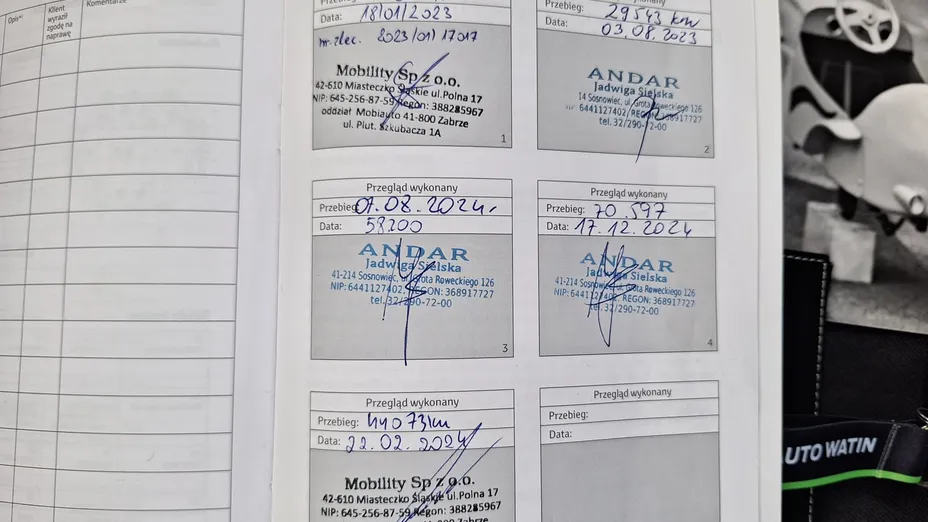 Opis*⁾
Klient wyraził zgodę na naprawę
Komentarze
Data: 18/01/2023
nr.zlec. 2023/01/17017
Mobility Sp z o.o.
42-610 Miasteczko Śląskie ul.Polna 17
NIP: 645-256-87-59 Regon: 388285967
oddział Mobiauto 41-800 Zabrze
ul. Plut. Szkubacza 1A
1
Przebieg: 29543 km
Data: 03.08.2023
ANDAR
Jadwiga Sielska
14 Sosnowiec, ul. Grota Roweckiego 126
NIP: 6441127402/REGON: 368917727
tel. 32/290-72-00
2
Przegląd wykonany
Przebieg: 07.08.2024r
Data: 58200
ANDAR
Jadwiga Sielska
41-214 Sosnowiec, ul. Grota Roweckiego 126
NIP: 6441127402, REGON: 368917727
tel. 32/290-72-00
3
Przegląd wykonany
Przebieg: 70.597
Data: 17.12.2024
ANDAR
Jadwiga Sielska
41-214 Sosnowiec, ul. Grota Roweckiego 126
NIP: 6441127402, REGON: 368917727
tel. 32/290-72-00
4
Przegląd wykonany
Przebieg: 44073km
Data: 22.02.2024
Mobility Sp z o.o.
42-610 Miasteczko Śląskie ul.Polna 17
NIP: 645-256-87-59 Regon: 388285967
Przegląd wykonany
Przebieg:
Data:
UTO WATIN